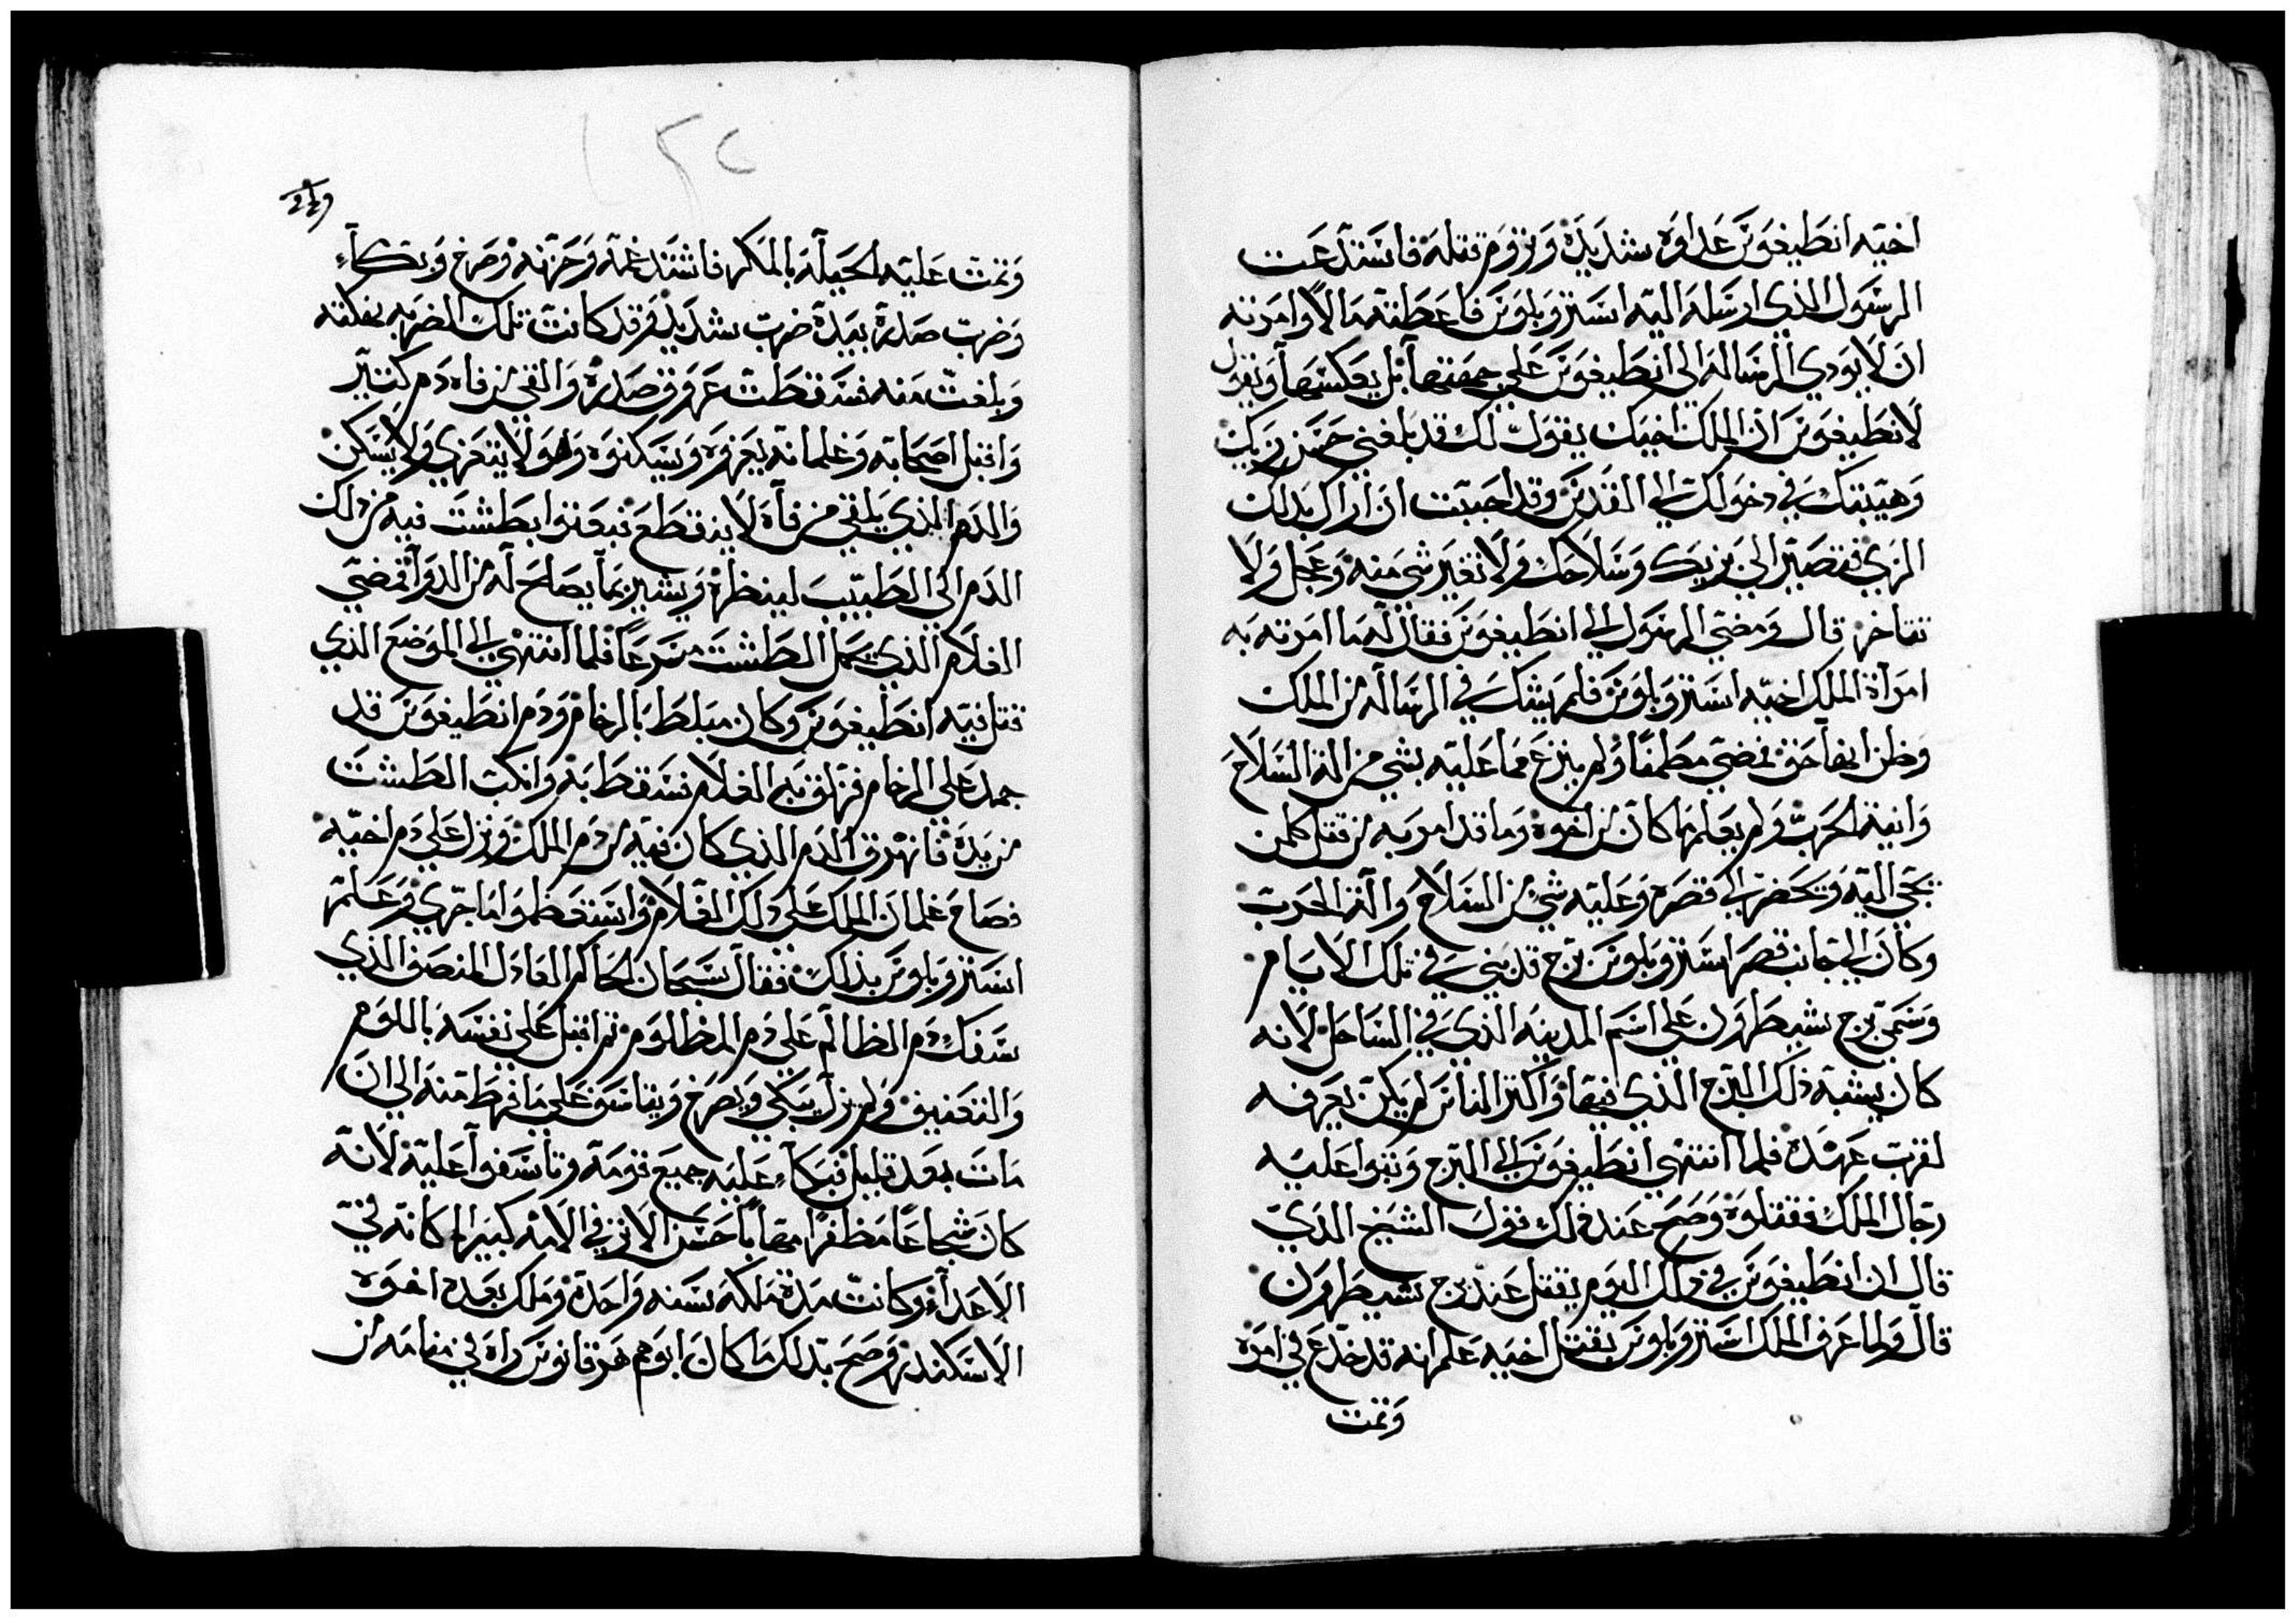 اخيه انطيغونس عداوه شديده وتروم قتله فاستدعت
الرسول الذي ارسله اليه استروبلوس فاعطته مالا وامرته
ان لا يودي الرساله الى انطيغونس على جهتها بل يعكسها ويقول
لانطيغونس ان الملك اخيك يقول لك قد بلغني حسن زيك
وهيبتك في دخولك الى القدس وقد احببت ان اراك بدلك
الزي فتصير الي بزيك وسلاحك ولا تغير شي منه وعجل ولا
تتاخر قال ومضى الرسول الى انطيغونس فقال له ما امرته به
امراة الملك اخيه استروبلوس فلم يشك في الرساله من الملك
وظن انها حق فمضى مطمنا ولم ينزع مما عليه بشي من الة السلاح
وانية الحرب ولم يعلم ما كان من اخوه وما قد امر به من قتل كلمن
يجي اليه ويحضر الى قصره وعليه شي من السلاح والة الحرب
وكان الى جانب قصر استروبلوس برج قد بني في تلك الايام
وسمي برج بشيطرون على اسم المدينه الذي في الساحل لانه
كان يشبه ذلك البرج الذي فيها واكثر الناس لم يكن يعرفه
لقرب عهده فلما انتهى انطيغونس الى البرج وثبوا عليه
رجال الملك فقتلوه وصح عند ذلك قول الشيخ الذي
قال ان انطيغونس في ذلك اليوم يقتل عند برج بشيطرون
قال ولما عرف الملك استروبلوس بقتل اخيه علم انه قد خدع في امره
وتمت
وتمت عليه الحيله بالمكر فاشتد غمه وحزنه وصرخ وبكاء
وضرب صدره بيده ضرب شديد وقد كانت تلك الضربه بفلقته
وبلغت منه فسقطت عروق صدره والقي من فاه دم كثير
واقبل اصحابه وغلمانه يعزوه ويسكنوه وهو لا يتعزي ولا يسكن
والدم الذي يلقي من فاه لا ينقطع فبعثوا بطشت فيه من ذلك
الدم الى الطبيب لينظره ويشير بما يصلح له من الدوا فمضى
الغلام الذي يحمل الطشت مسرعا فلما انتهى الى الموضع الذي
قتل فيه انطيغونس وكان مبلط بالرخام ودم انطيغونس قد
جمد على الرخام فزلق به الغلام فسقط به وانكب الطشت
من يده فانهرق الدم الذي كان فيه من دم الملك ونزل على دم اخيه
فصاح غلمان الملك على ذلك الغلام واستعظموا ما جري وعلم
استروبلوس بذلك فقال سبحان الحاكم العادل المنصف الذي
سفك دم الظالم على دم المظلوم ثم اقبل على نفسه باللوم
والتعنيف ولم يزل يبكي ويصرخ ويتاسف على ما فرط منه الى ان
مات بعد قليل فبكاء عليه جميع قومه وتاسفوا عليه لانه
كان شجاعا مظفرا مهابا حسن الاثر في الامه كبير المكانه في
الاعداء وكانت مدة ملكه سنه واحدة وملك بعده اخوه
الاسكندر وصح بذلك ما كان ابوهم هرقانوس راه في منامه ان